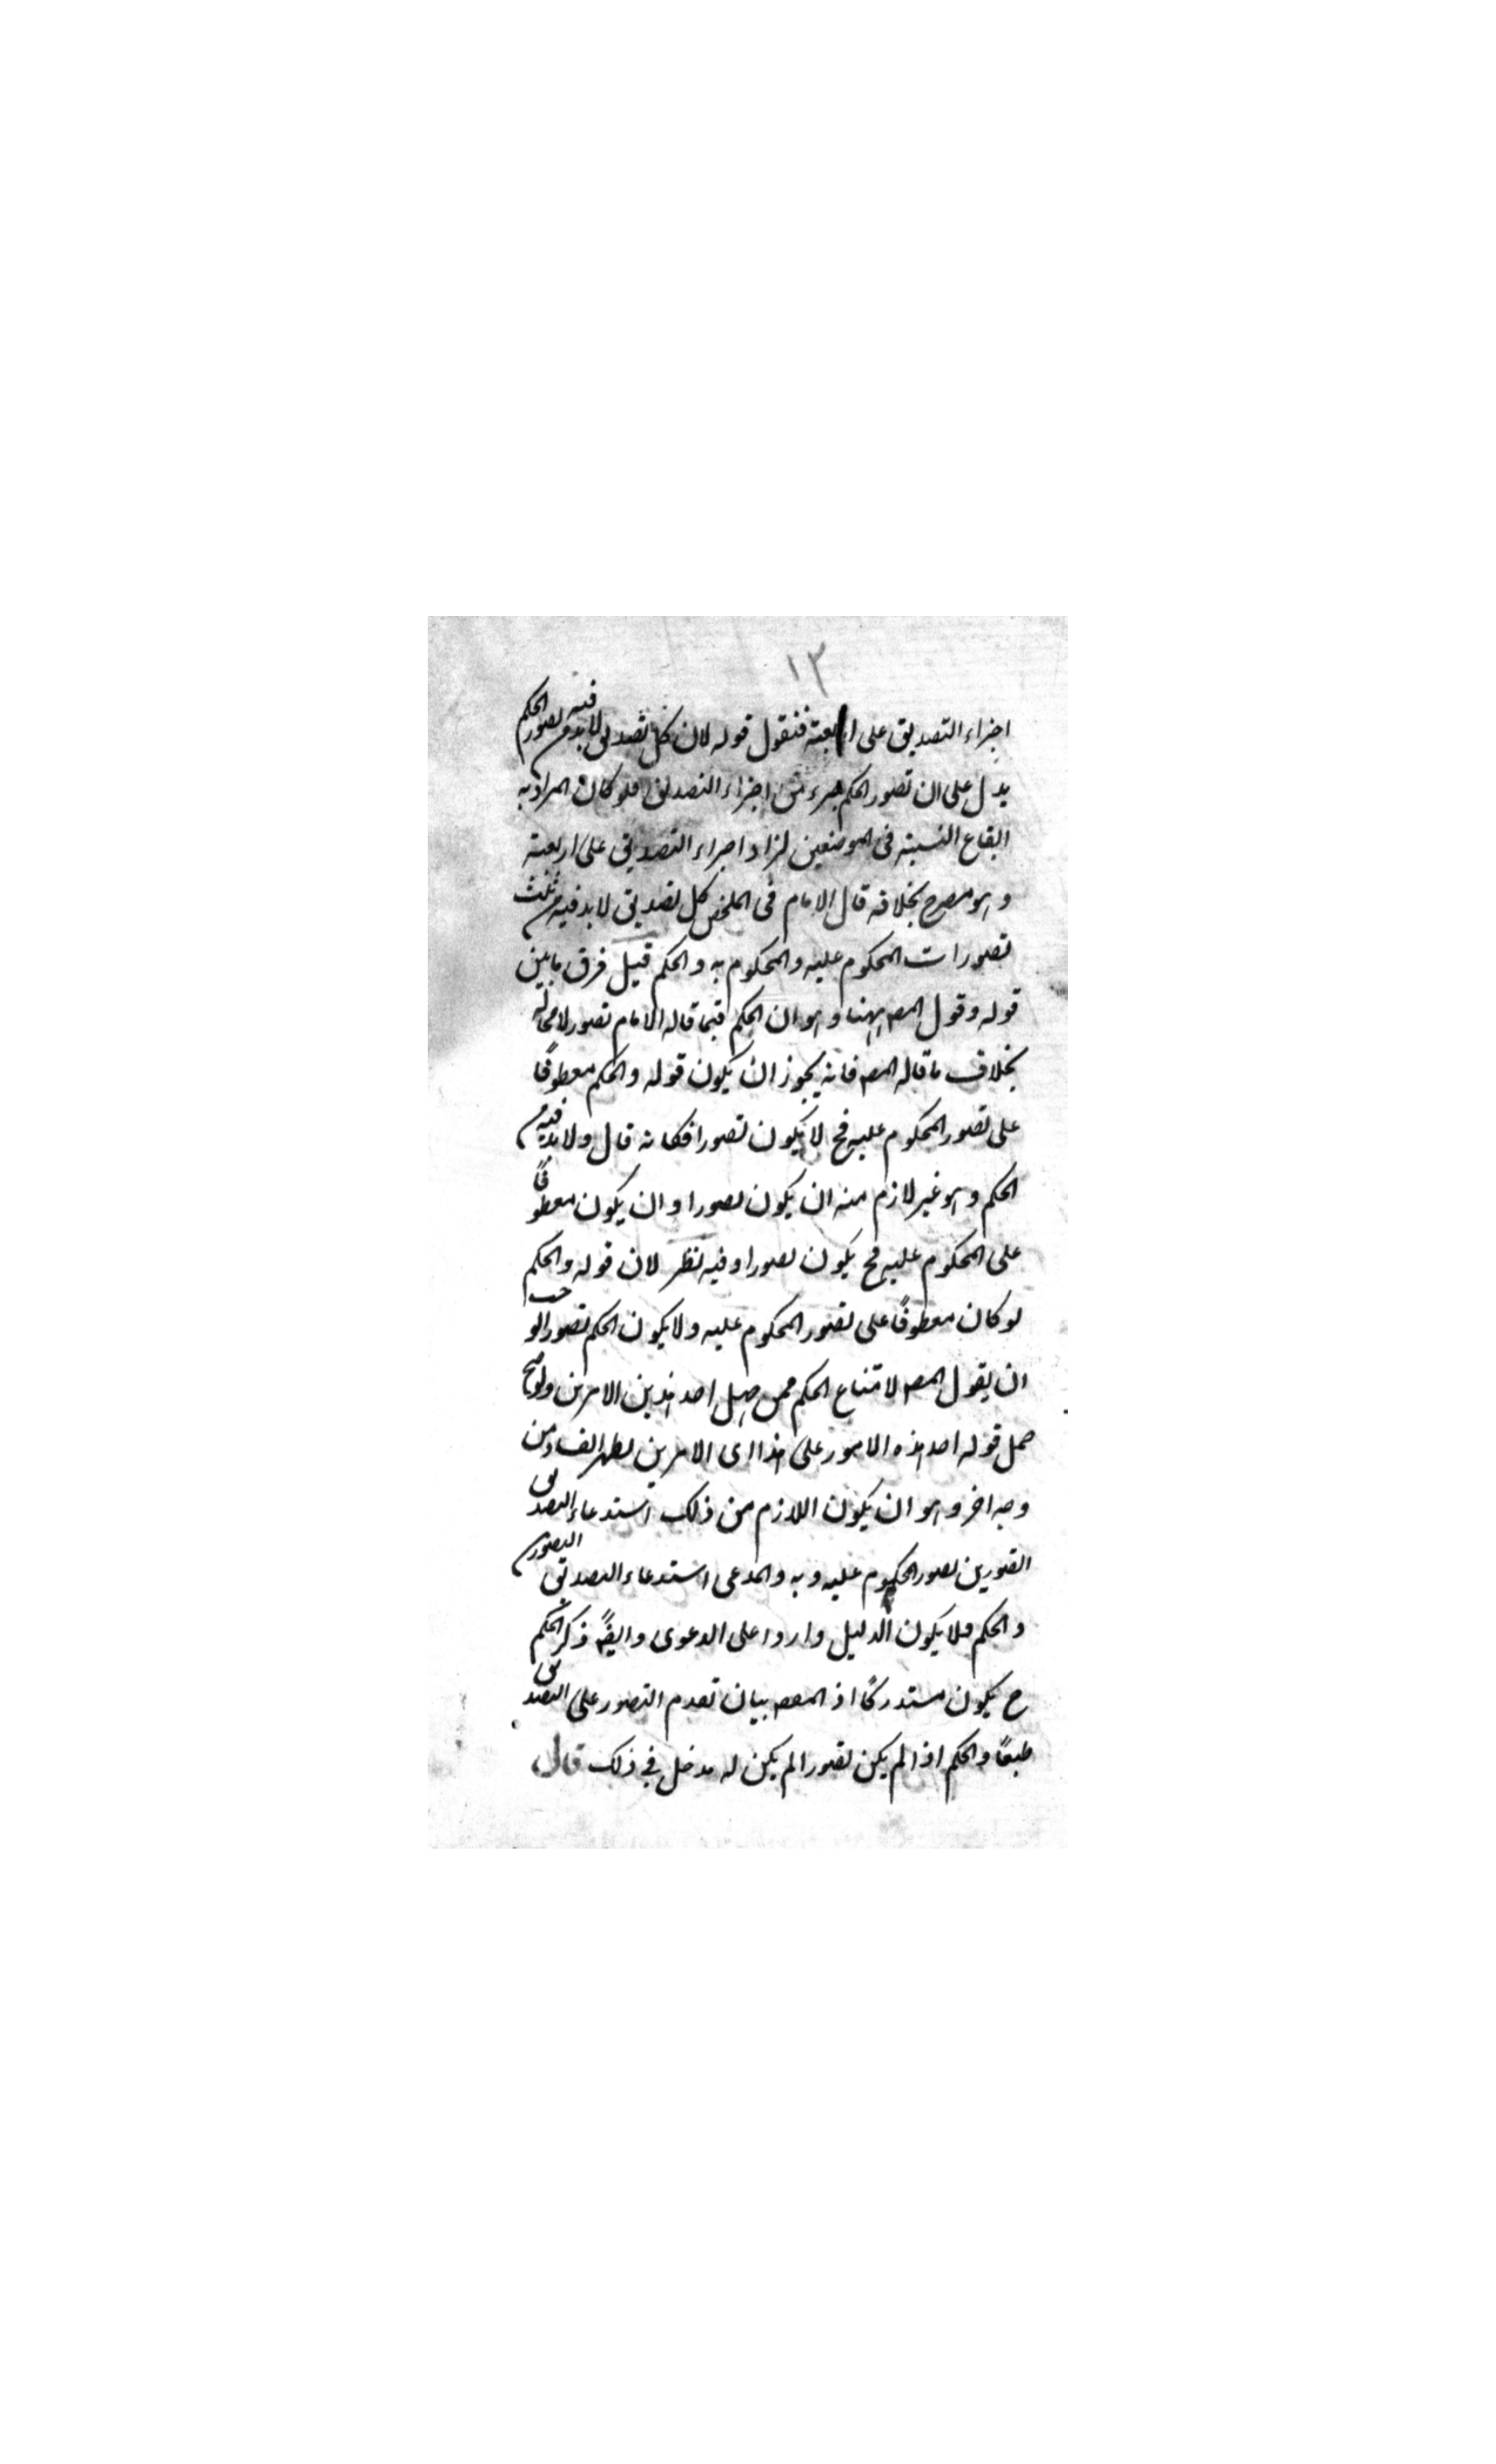 ١٣
اجزاء التصديق على اربعة فنقول قوله لان كل تصديق لابد فيه من تصور الحكم
يدل على ان تصور الحكم جزء من اجزاء التصديق فلو كان المراد به
ايقاع النسبة فى الموضعين لزاد اجزاء التصديق على اربعة
وهو مصرح بخلافه قال الامام فى الملخص كل تصديق لابد فيه من ثلث
تصورات المحكوم عليه والمحكوم به والحكم قيل فرق ما بين
قوله وقول المصـ ههنا وهو ان الحكم فيما قاله الامام تصور لا محالة
بخلاف ما قاله المصـ فانه يجوز ان يكون قوله والحكم معطوفًا
على تصور المحكوم عليه فح لا يكون تصورا فكانه قال ولابد فيه من
الحكم وهو غير لازم منه ان يكون تصورا وان يكون معطوفًا
على المحكوم عليه فح يكون تصورا وفيه نظر لان قوله والحكم
لو كان معطوفًا على تصور المحكوم عليه ولا يكون الحكم تصورا لوجب
ان يقول المصـ لامتناع الحكم ممن جهل احد هذين الامرين ولو صح
حمل قوله احد هذه الامور على هذا اى الامرين لظهر الفساد من
وجه اخر وهو ان يكون اللازم من ذلك استدعاء التصديق
التصورين تصور المحكوم عليه وبه والمدعى استدعاء التصديق التصورين
والحكم فلا يكون الدليل واردا على الدعوى وايضًا ذكر الحكم
ح يكون مستدركًا اذ المصـ بيان تقدم التصور على التصديق
طبعًا والحكم اذا لم يكن تصورا لم يكن له مدخل في ذلك قال